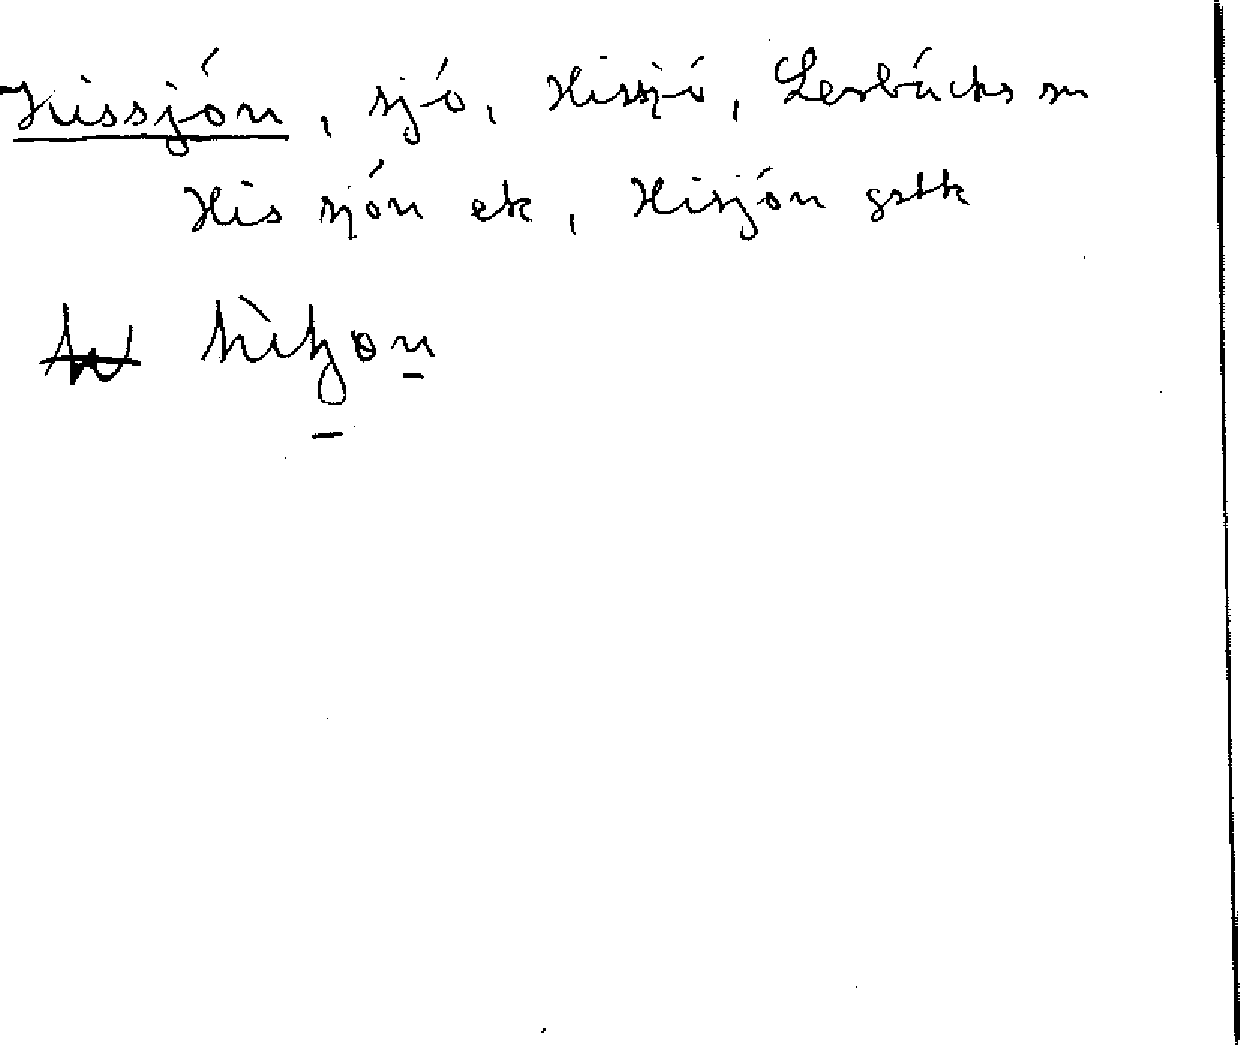 Hissjön, sjö, Hissjö, Lerbäcks sn
His sjön ek, Hisjön gstk